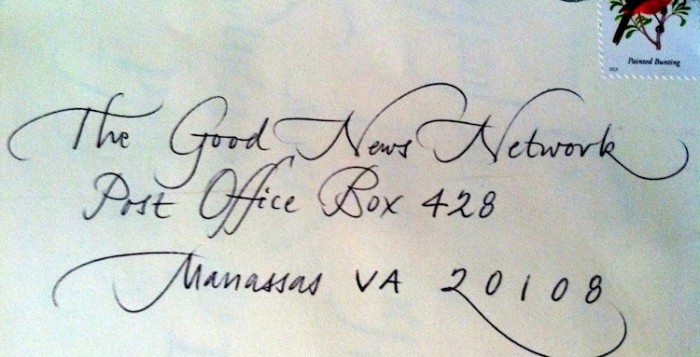 Painted Bunting
The Good News Network
Post Office Box 428
Manassas VA 20108